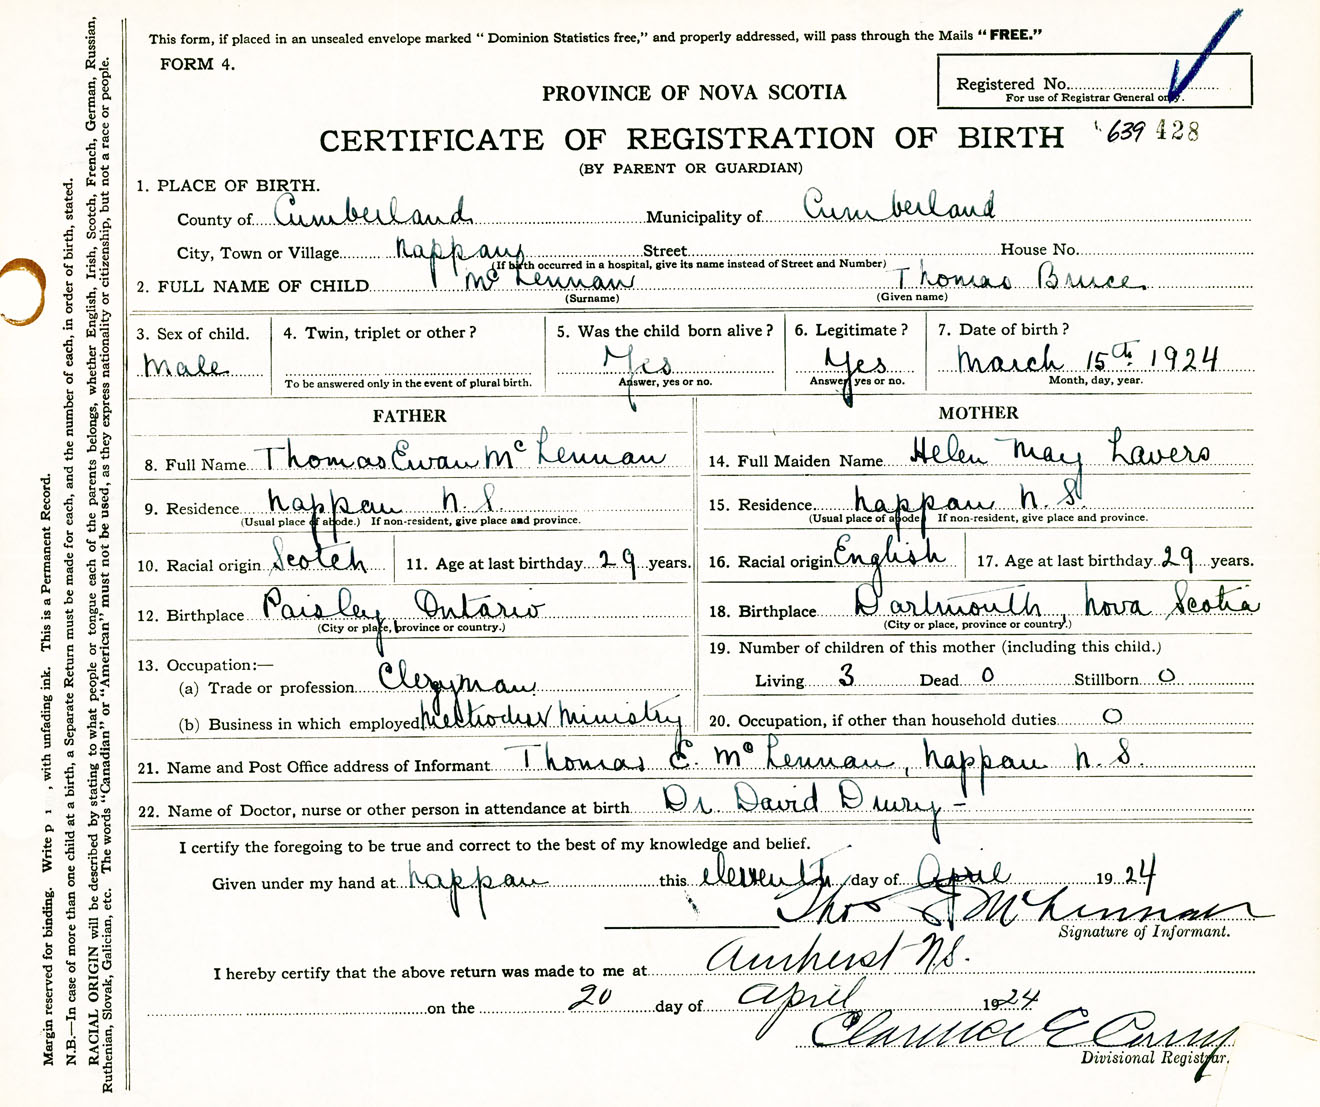 This form, if placed in an unsealed envelope marked "Dominion Statistics free," and properly addressed, will pass through the Mails "FREE."
FORM 4.
Registered No.
For use of Registrar General only.
PROVINCE OF NOVA SCOTIA
CERTIFICATE OF REGISTRATION OF BIRTH 639 428
(BY PARENT OR GUARDIAN)
1. PLACE OF BIRTH.
County of Cumberland Municipality of Cumberland
City, Town or Village Nappan Street House No.
(If birth occurred in a hospital, give its name instead of Street and Number)
2. FULL NAME OF CHILD McLennan Thomas Bruce
(Surname) (Given name)
3. Sex of child. 4. Twin, triplet or other? 5. Was the child born alive? 6. Legitimate? 7. Date of birth?
Male Yes Yes March 15th 1924
To be answered only in the event of plural birth. Answer, yes or no. Answer yes or no. Month, day, year.
FATHER MOTHER
8. Full Name Thomas Ewan McLennan 14. Full Maiden Name Helen May Lavers
9. Residence Nappan N.S. 15. Residence Nappan N.S.
(Usual place of abode.) If non-resident, give place and province. (Usual place of abode) If non-resident, give place and province.
10. Racial origin Scotch 11. Age at last birthday 29 years. 16. Racial origin English 17. Age at last birthday 29 years.
12. Birthplace Paisley Ontario 18. Birthplace Dartmouth, Nova Scotia
(City or place, province or country.) (City or place, province or country.)
13. Occupation:— 19. Number of children of this mother (including this child.)
(a) Trade or profession Clergyman Living 3 Dead 0 Stillborn 0
(b) Business in which employed Methodist Ministry 20. Occupation, if other than household duties 0
21. Name and Post Office address of Informant Thomas E. McLennan, Nappan N.S.
22. Name of Doctor, nurse or other person in attendance at birth Dr. David Drury -
I certify the foregoing to be true and correct to the best of my knowledge and belief.
Given under my hand at Nappan this eleventh day of April 1924
Thos E McLennan
Signature of Informant.
I hereby certify that the above return was made to me at Amherst N.S.
on the 20 day of April 1924
Clarence E
Divisional Registrar.
Margin reserved for binding. Write p , with unfading ink. This is a Permanent Record.
N.B.—In case of more than one child at a birth, a Separate Return must be made for each, and the number of each, in order of birth, stated.
RACIAL ORIGIN will be described by stating to what people or tongue each of the parents belongs, whether English, Irish, Scotch, French, German, Russian,
Ruthenian, Slovak, Galician, etc. The words "Canadian" or "American" must not be used, as they express nationality or citizenship, but not a race or people.